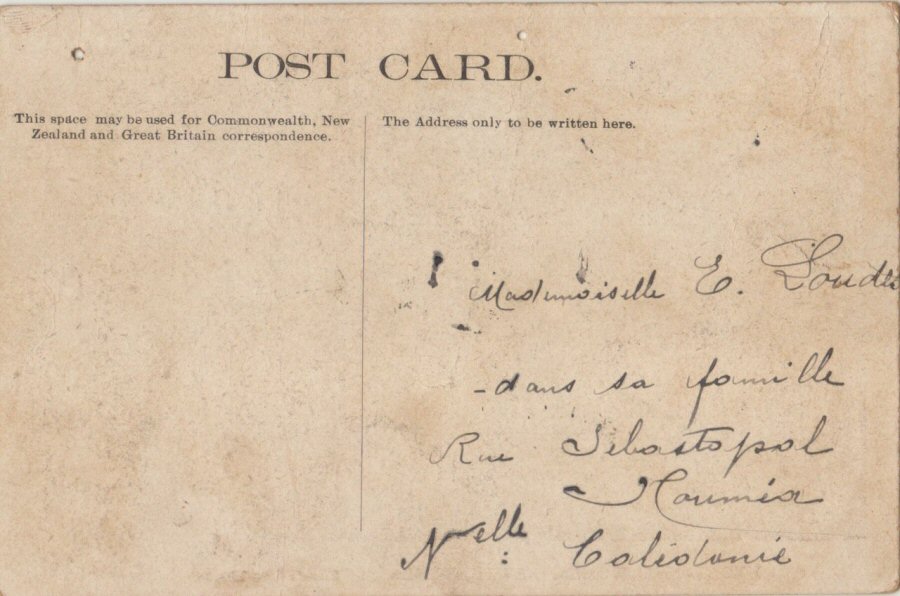 POST CARD.
This space may be used for Commonwealth, New
Zealand and Great Britain correspondence.
The Address only to be written here.
Mademoiselle E.
-dans sa famille
Rue Sebastopol
Nouméa
Nelle : Calédonie